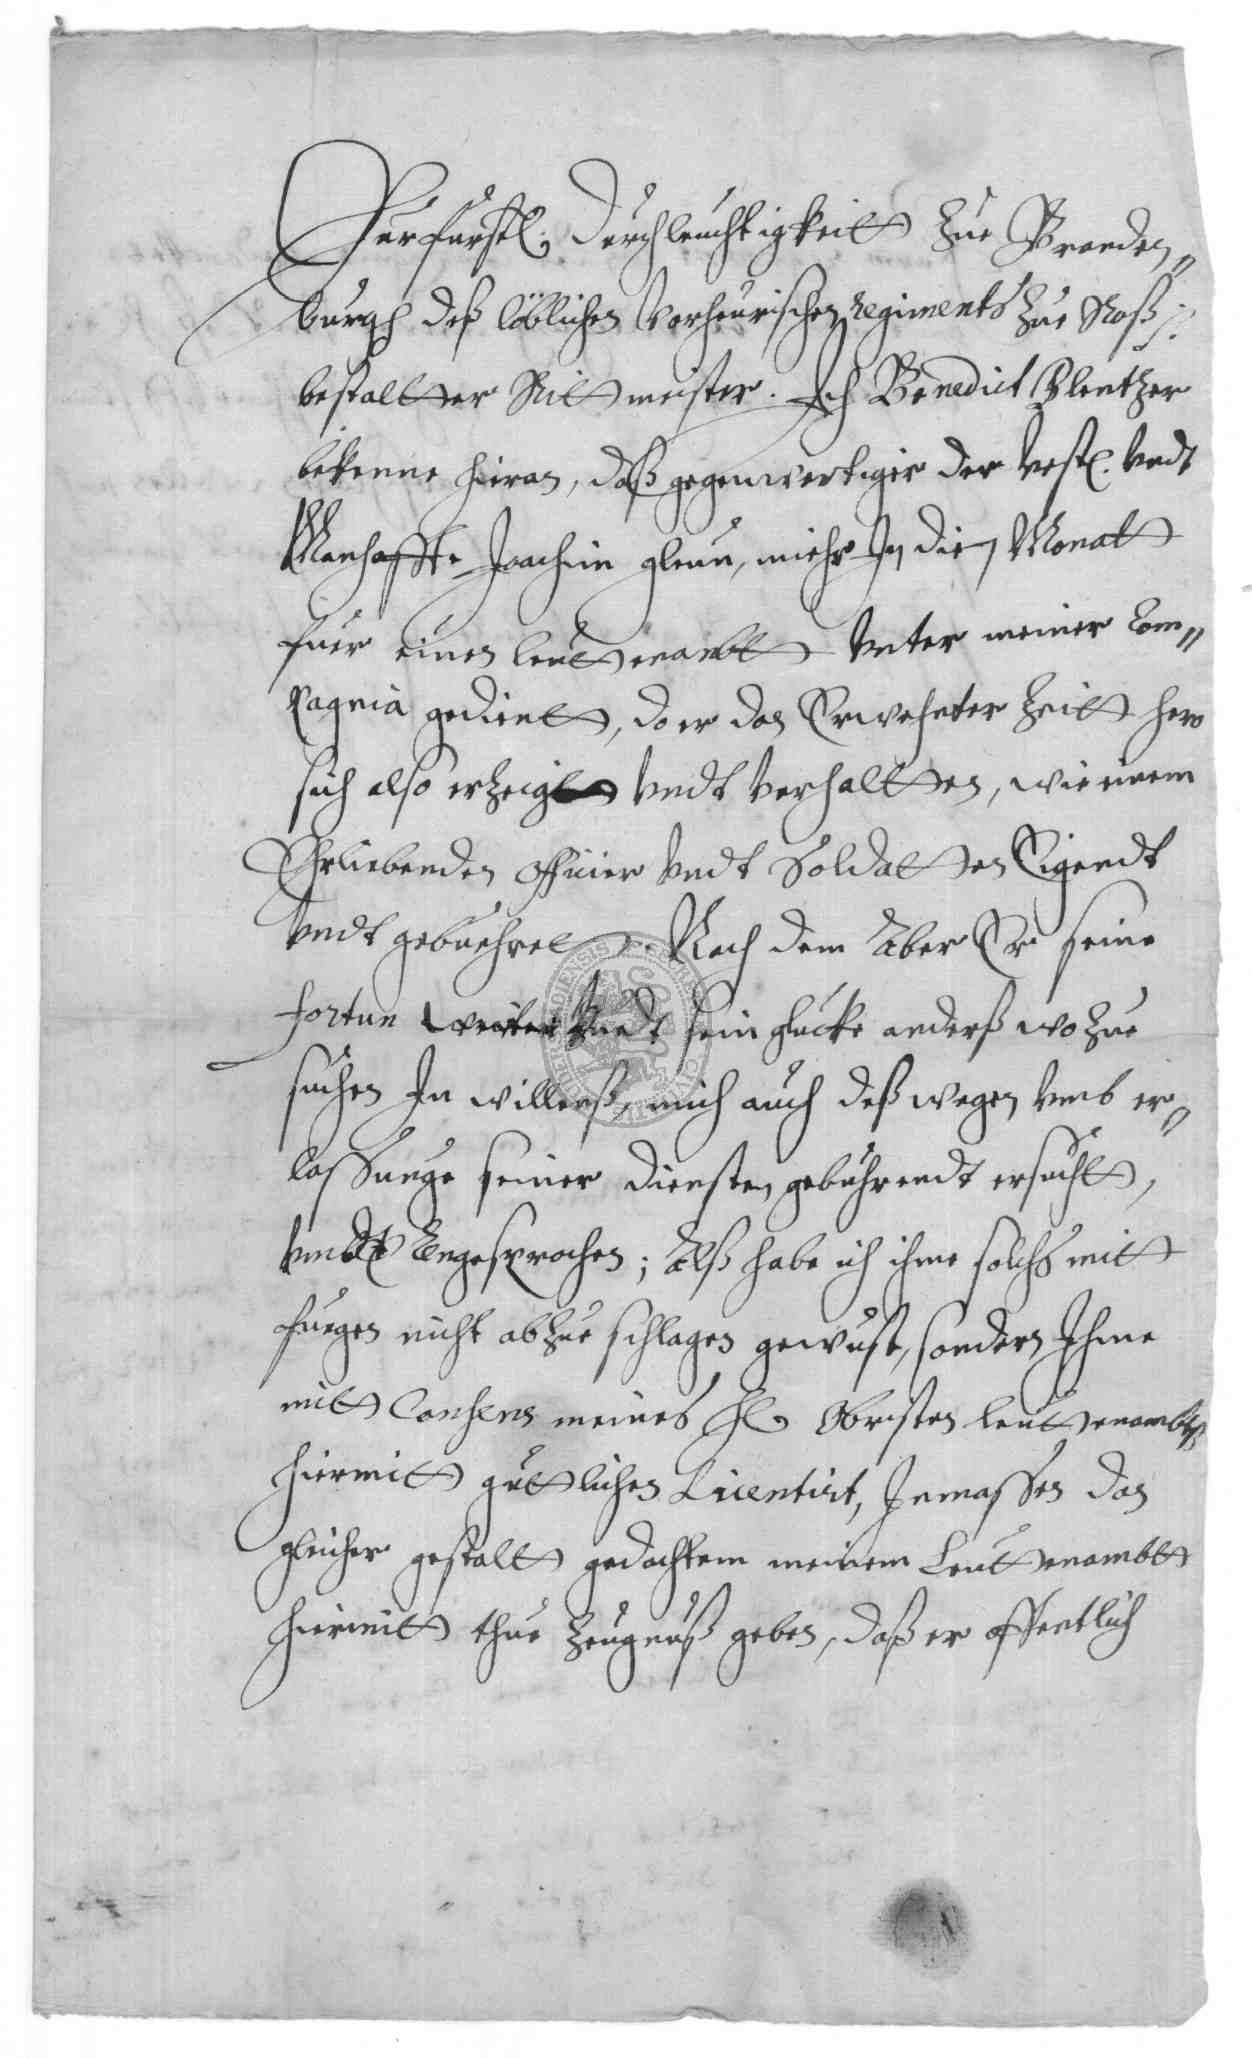 Churfurstl: Durchleuchtigkeitt zue Branden„
burgh deß löblichen Vorheurischen Regiments zue Roß
bestaltter Rittmeister. Ich Benedict
bekenne hieran, daß gegenwertiger der Vest. Vndt
Manhaffte Joachim mihr In die Monatt
fuer einen leuttenambtt Vnter meiner Com„
pagnia gedientt, do er dan Erwehnter Zeitt hero
sich also erzeigtt Vndt Verhaltten, wie einem
Ehrliebenden officier Vndt Soldatten Eigendt
Vndt gebuehrett. Nach dem aber Er seine
fortun weiter Vndt sein glucke anderß wo zue
suchen In willenß, mich auch deßwegen Vmb er„
lassunge seiner diensten gebuhrendt ersucht,
Vndt Angesprochen; Alß habe ich ihme solchs mitt
fuegen nicht abzue schlagen gewust, sondern Ihme
mitt Consens meines H. Obristen leuttenambtß
hiermitt güttlichen Licentirt, Inmassen dan
gleicher gestaltt gedachtem meinem Leuttenambtt
hiermitt thue Zeugnuß geben, daß er offentlich